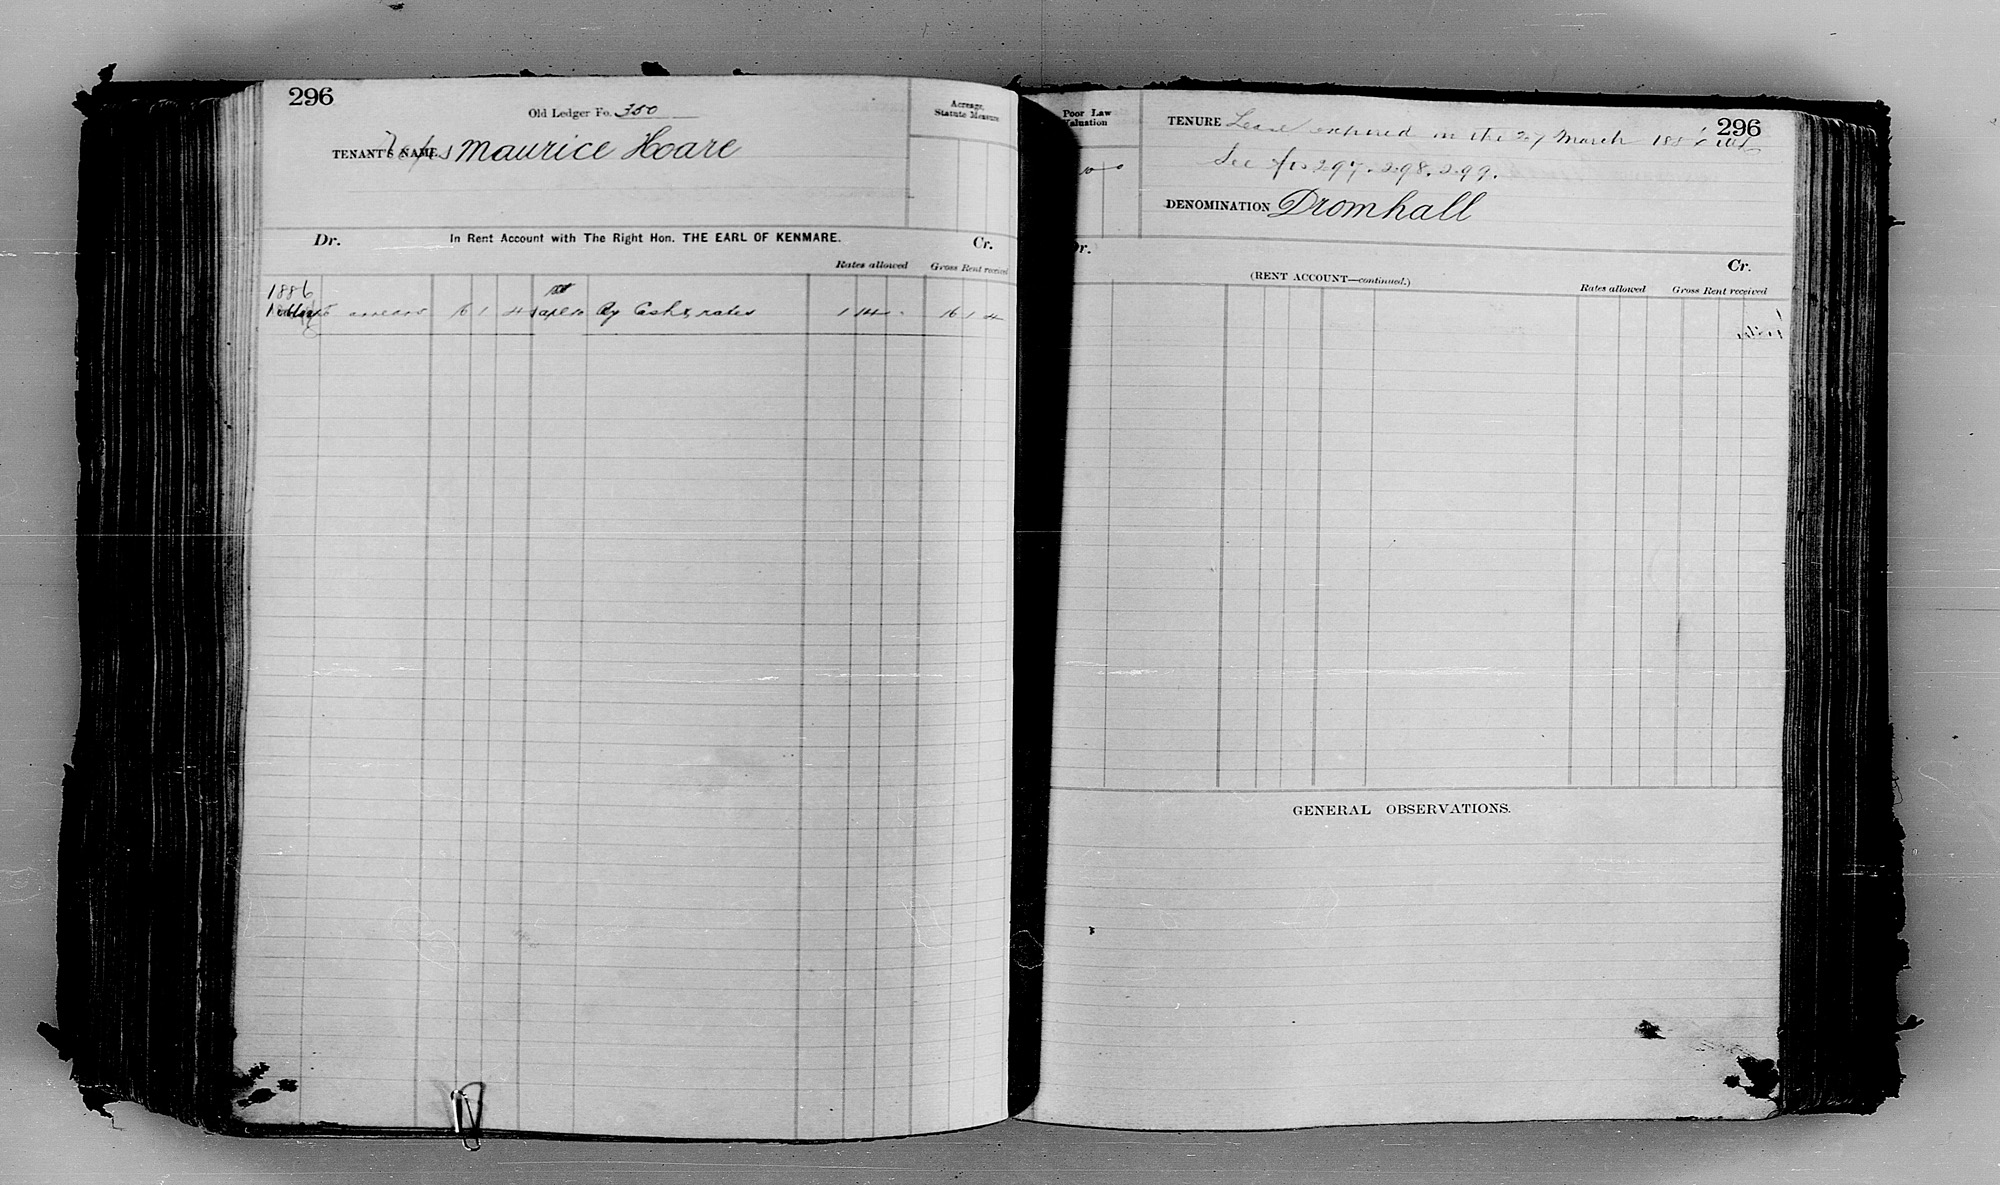 296
Old Ledger Fo. 350
TENANT'S NAME. Reps Maurice Hoare
Acreage, Statute Measure
Dr. In Rent Account with The Right Hon. THE EARL OF KENMARE. Cr.
Rates allowed Gross Rent received
1886
arrears 16 1 4 By Cash & rates 1 14 - 16 1 4
Poor Law Valuation
TENURE Lease expired on the 27 March 188
296
See fos 297. 298. 299.
DENOMINATION Dromhall
Dr. Cr.
(RENT ACCOUNT—continued.)
Rates allowed Gross Rent received
GENERAL OBSERVATIONS.